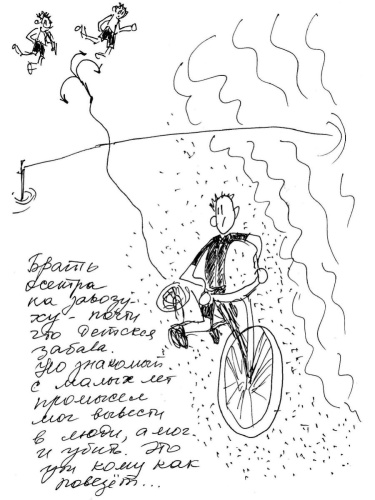 Брать
осетра
на завозу-
ху - почти
что детская
забава.
Но знакомый
с малых лет
промысел
мог вывести
в люди, а мог
и убить. Это
уж кому как
повезёт...